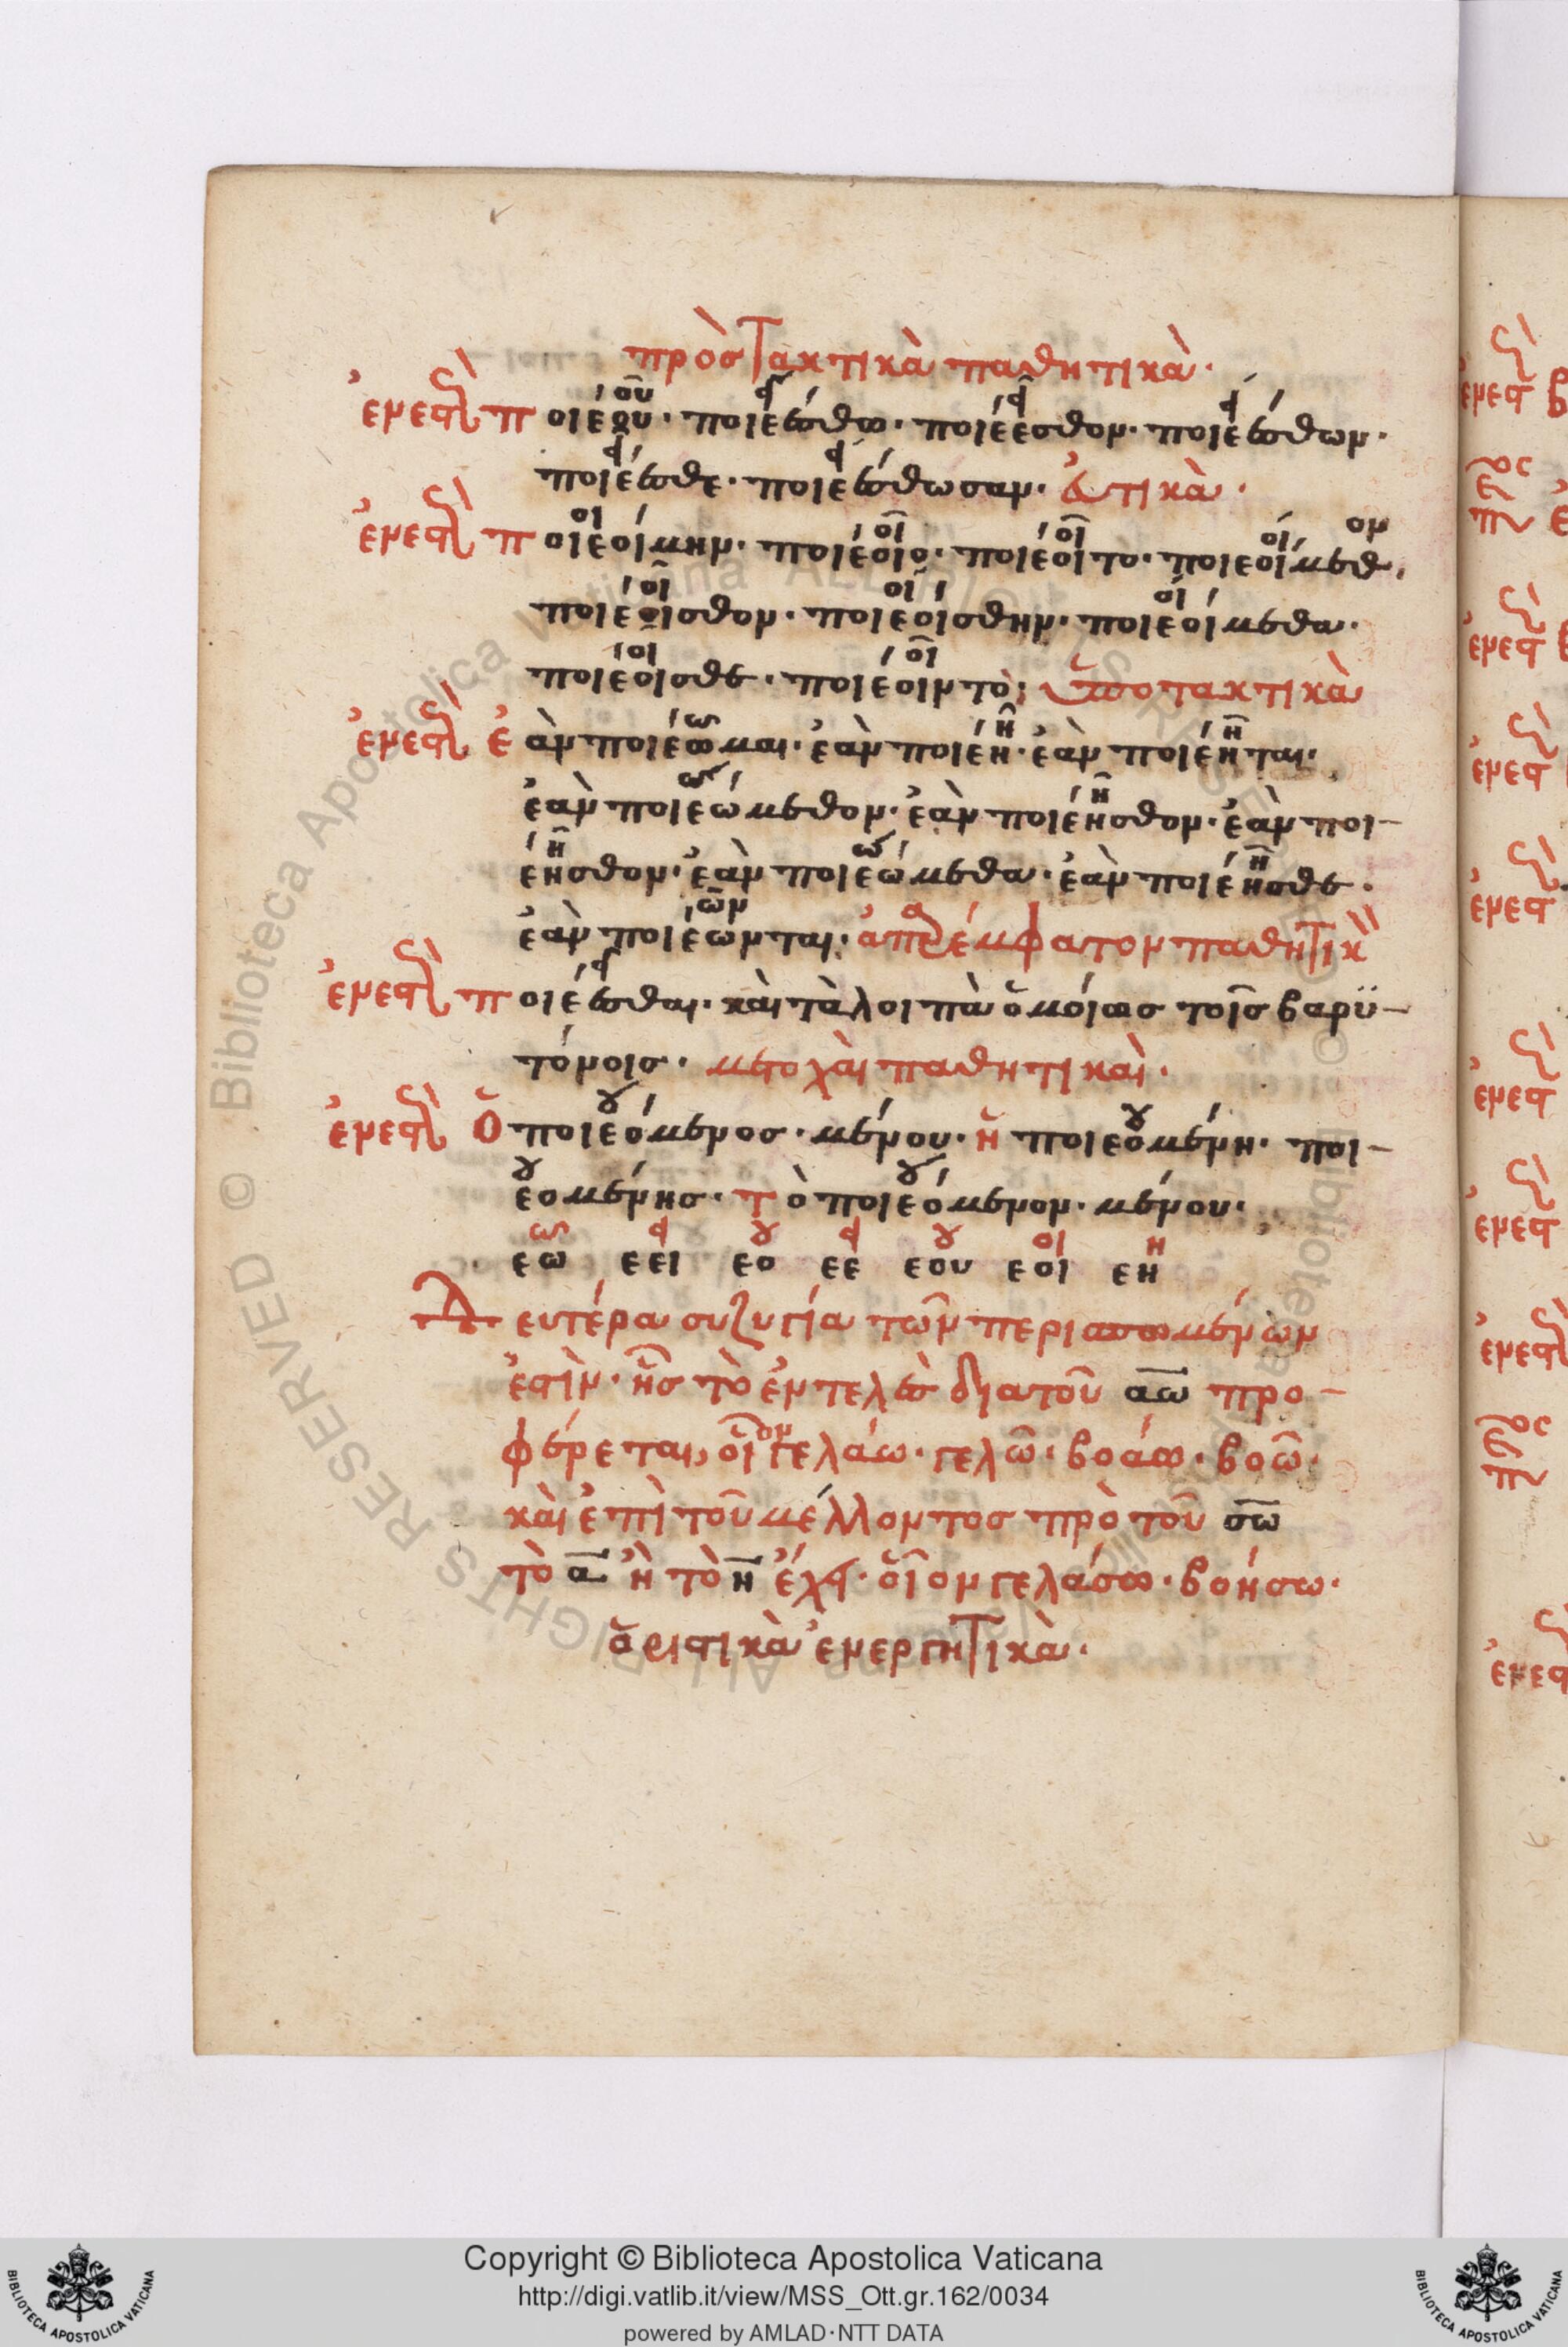 προστακτικὰ παθητικὰ.
ἐνεστὼ ποιέου. ποιέεσθω. ποιέεσθον. ποιεέσθων.
ποιέεσθε. ποιεέσθωσαν. εὐκτικὰ.
ἐνεστὼ ποιεοίμην. ποιέοιο. ποιέοιτο. ποιεοίμεθον.
ποιέοισθον. ποιεοίσθην. ποιεοίμεθα.
ποιέοισθε. ποιέοιντο: ὑποτακτικὰ
ἐνεστὼ ἐὰν ποιέωμαι. ἐὰν ποιέη. ἐὰν ποιέηται.
ἐὰν ποιεώμεθον. ἐὰν ποιέησθον. ἐὰν ποι-
έησθον. ἐὰν ποιεώμεθα. ἐὰν ποιέησθε.
ἐὰν ποιέωνται. ἀπαρέμφατον παθητικ
ποιέεσθαι. καὶ τὰ λοιπὰ ὁμοίως τοῖς βαρϋ-
τόνοις. μετοχαὶ παθητικαὶ.
ἐνεστὼ ὁ ποιεόμενος. μένου. ἡ ποιεομένη. ποι-
εομένης. τὸ ποιεόμενον. μένου.
ω ει ου ει ου οι η
εω εει εο εε εου εοι εη
Δευτέρα συζυγία τῶν περισπωμένων
ἐστὶν. ἧς τὸ ἐντελὲς διὰ τοῦ αω προ-
φέρεται, οἷον γελάω. γελῶ. βοάω. βοῶ.
καὶ ἐπὶ τοῦ μέλλοντος πρὸ τοῦ σω
τὸ α ἢ τὸ η ἔχει. οἷον γελάσω. βοήσω.
ὁριστικὰ ἐνεργητικὰ.
Copyright © Biblioteca Apostolica Vaticana
http://digi.vatlib.it/view/MSS_Ott.gr.162/0034
powered by AMLAD·NTT DATA
BIBLIOTECA APOSTOLICA VATICANA
BIBLIOTECA APOSTOLICA VATICANA